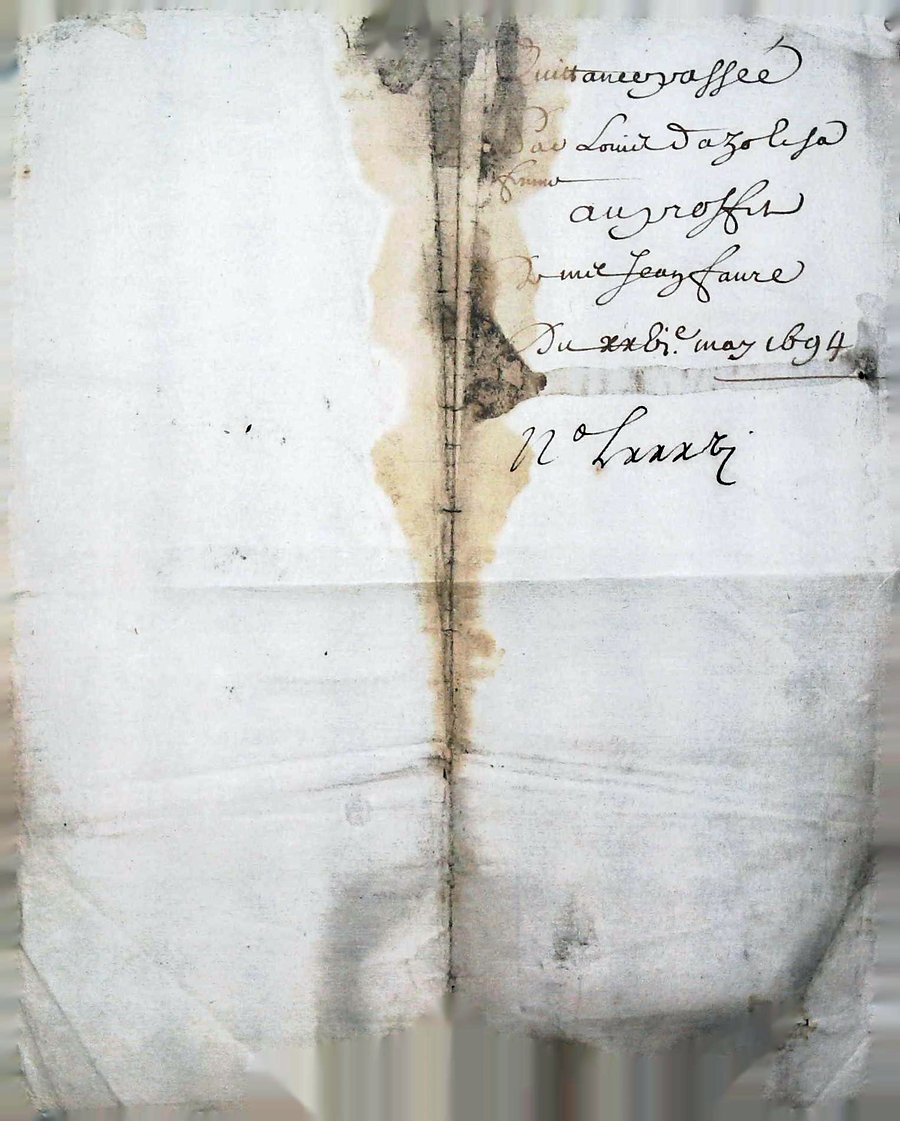 Quittance passée
Par Louis Dazo le sa
femme
au proffit
De me Jean faure
Du xxvie. may 1694
No Lxxxvi